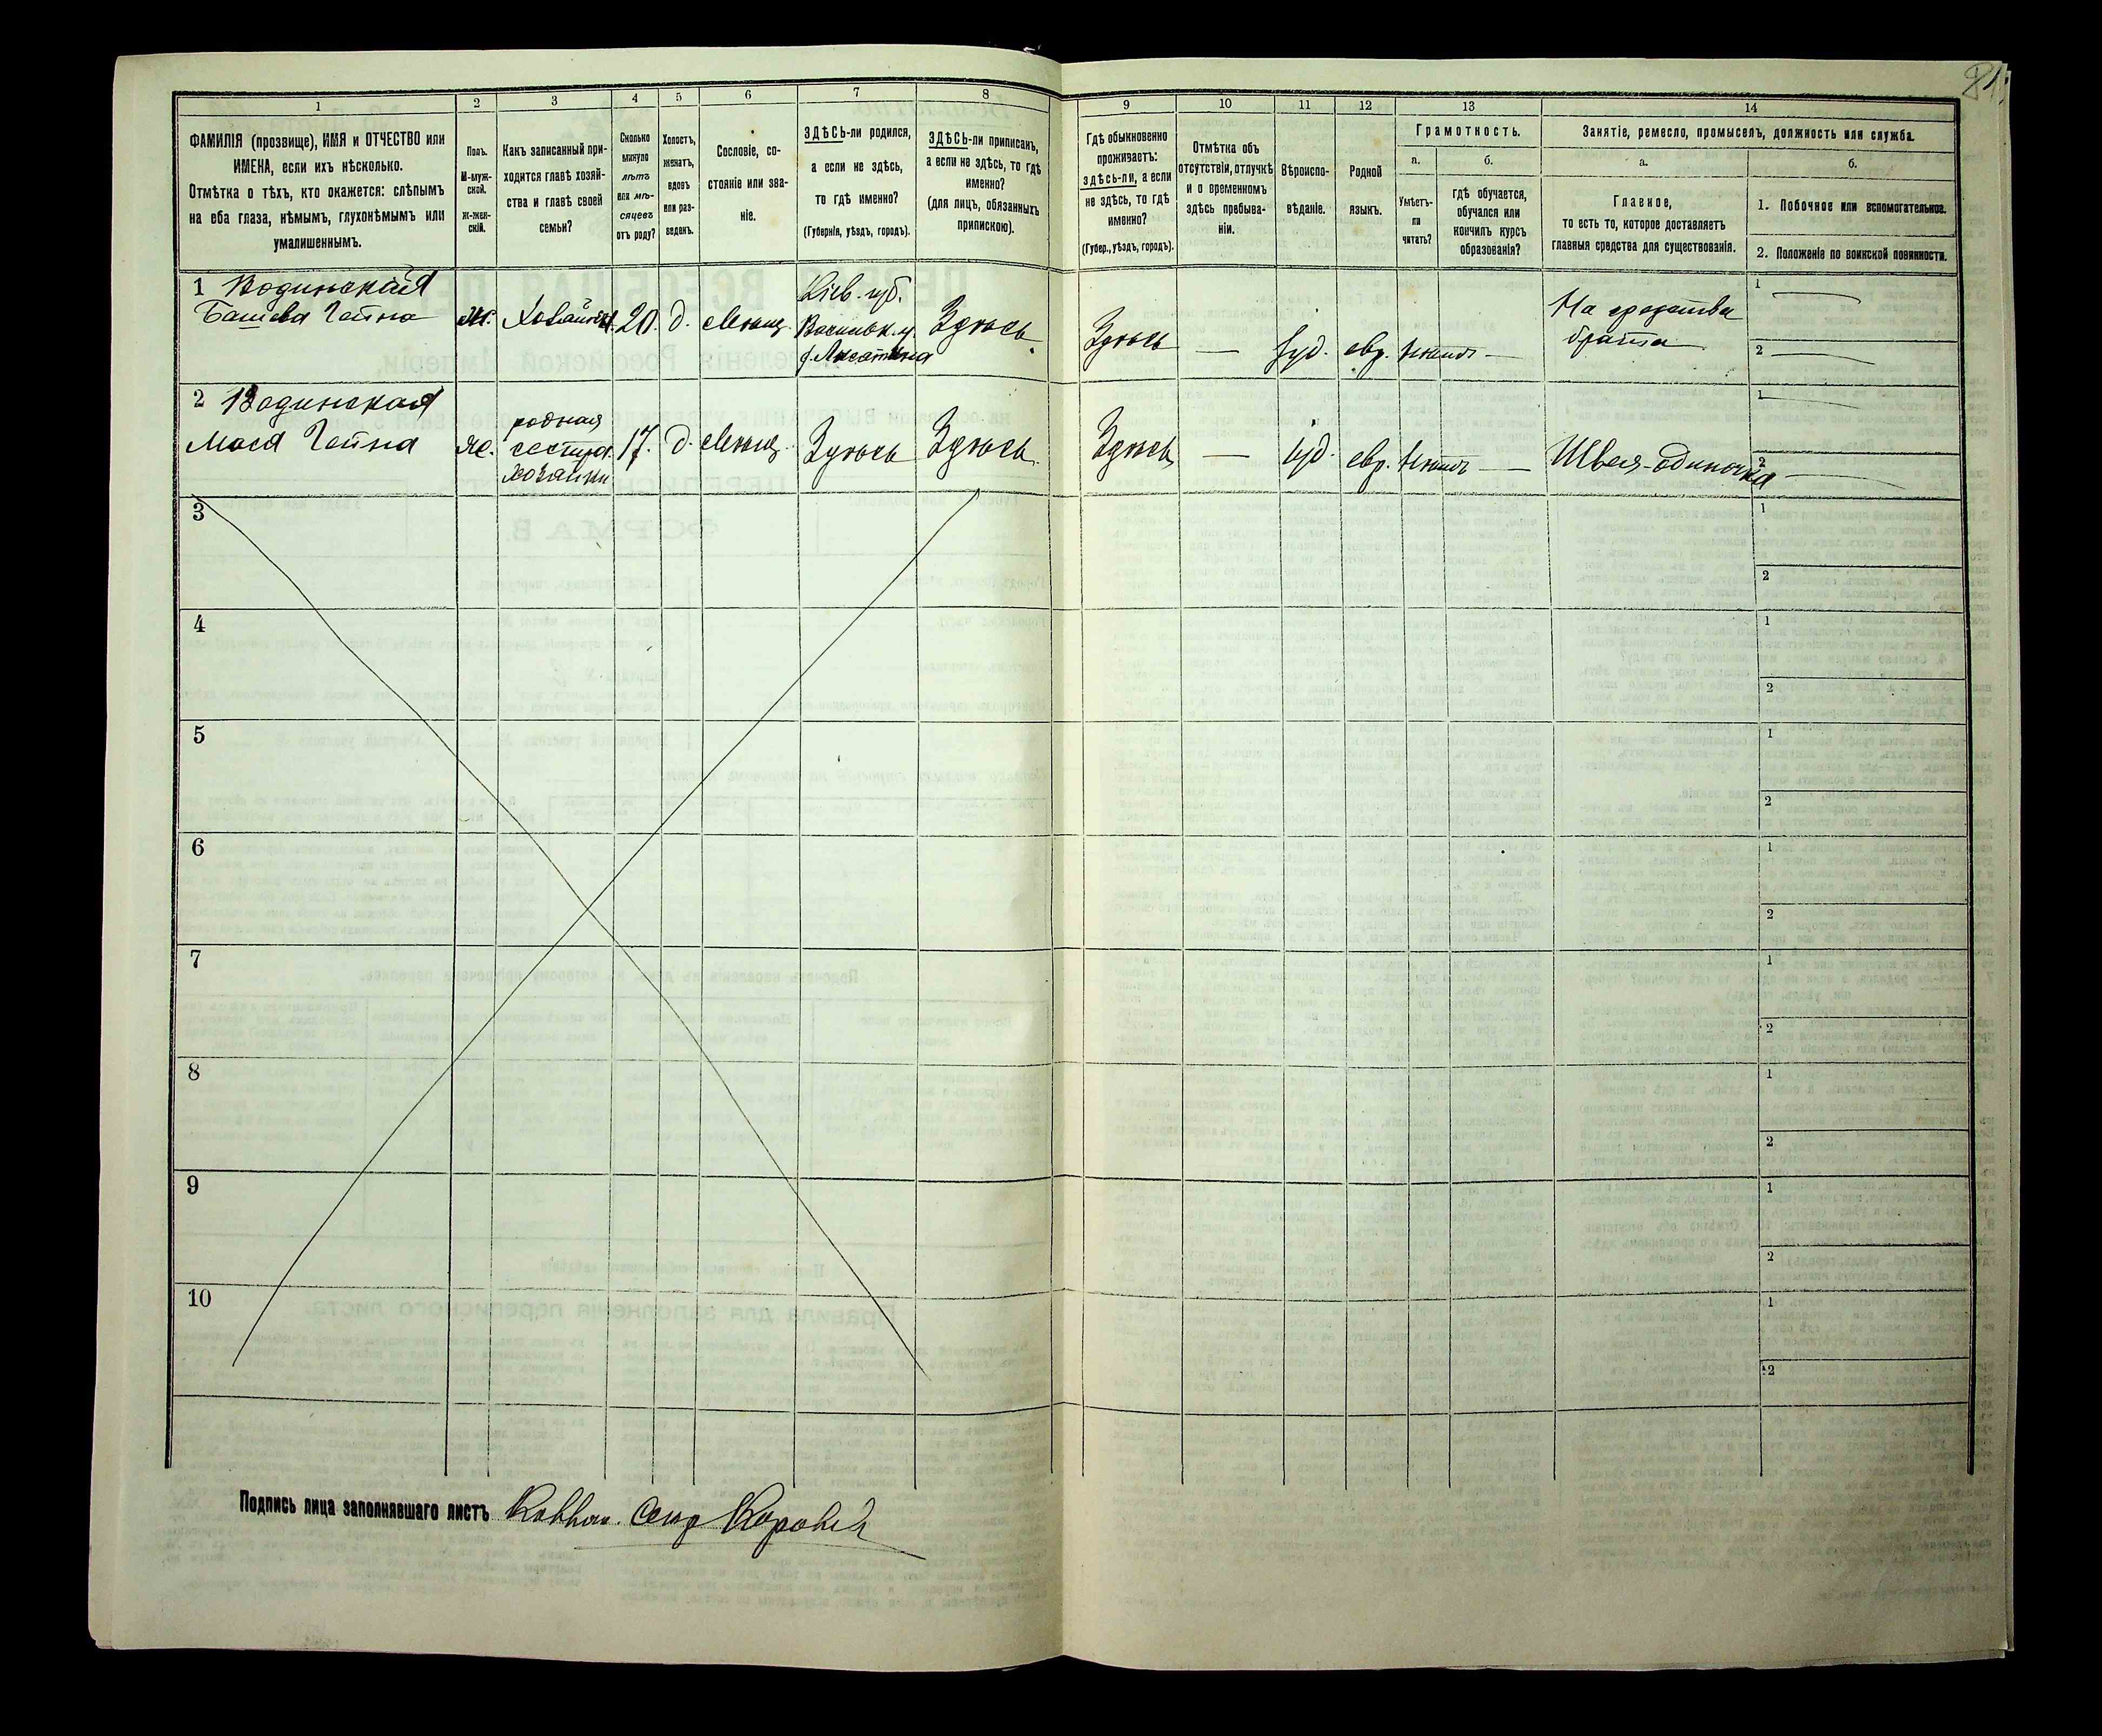 81.
1 2 3 4 5 6 7 8 9 10 11 12 13 14
ФАМИЛІЯ (прозвище), ИМЯ и ОТЧЕСТВО или
ИМЕНА, если ихъ нѣсколько.
Отмѣтка о тѣхъ, кто окажется: слѣпымъ
на оба глаза, нѣмымъ, глухонѣмымъ или
умалишеннымъ.
Полъ.
М-муж-
ской.
Ж-жен-
скій.
Какъ записанный при-
ходится главѣ хозяй-
ства и главѣ своей
семьи?
Сколько
минуло
лѣтъ
или мѣ-
сяцевъ
отъ роду?
Холостъ,
женатъ,
вдовъ
или раз-
веденъ.
Сословіе, со-
стояніе или зва-
ніе.
ЗДѢСЬ-ли родился,
а если не здѣсь,
то гдѣ именно?
(Губернія, уѣздъ, городъ).
ЗДѢСЬ-ли приписанъ,
а если не здѣсь, то гдѣ
именно?
(для лицъ, обязанныхъ
припискою).
Гдѣ обыкновенно
проживаетъ:
здѣсь-ли, а если
не здѣсь, то гдѣ
именно?
(Губер., уѣздъ, городъ).
Отмѣтка объ
отсутствіи, отлучкѣ
и о временномъ
здѣсь пребыва-
ніи.
Вѣроиспо-
вѣданіе.
Родной
языкъ.
Грамотность.
а.
Умѣетъ-
ли
читать?
б.
гдѣ обучается,
обучался или
кончилъ курсъ
образованія?
Занятіе, ремесло, промыселъ, должность или служба.
а.
Главное,
то есть то, которое доставляетъ
главныя средства для существованія.
б.
1. Побочное или вспомогательное.
2. Положеніе по воинской повинности.
1 Водинская
Башева Гетна
Ж.
Хозяйка
20.
д.
Мѣщ.
Кіев. губ.
Васильк. у.
Здѣсь
Здѣсь
—
Іуд.
евр.
—
На средства
брата
1
2
2 Водинская
Мася Гетна
Ж.
родная
сестра
хозяйки
17.
д.
Мѣщ.
Здѣсь
Здѣсь
Здѣсь
—
Іуд.
евр.
—
Швея-одиночка
1
2
3
1
2
4
1
2
5
1
2
6
1
2
7
1
2
8
1
2
9
1
2
10
1
2
Подпись лица заполнявшаго листъ